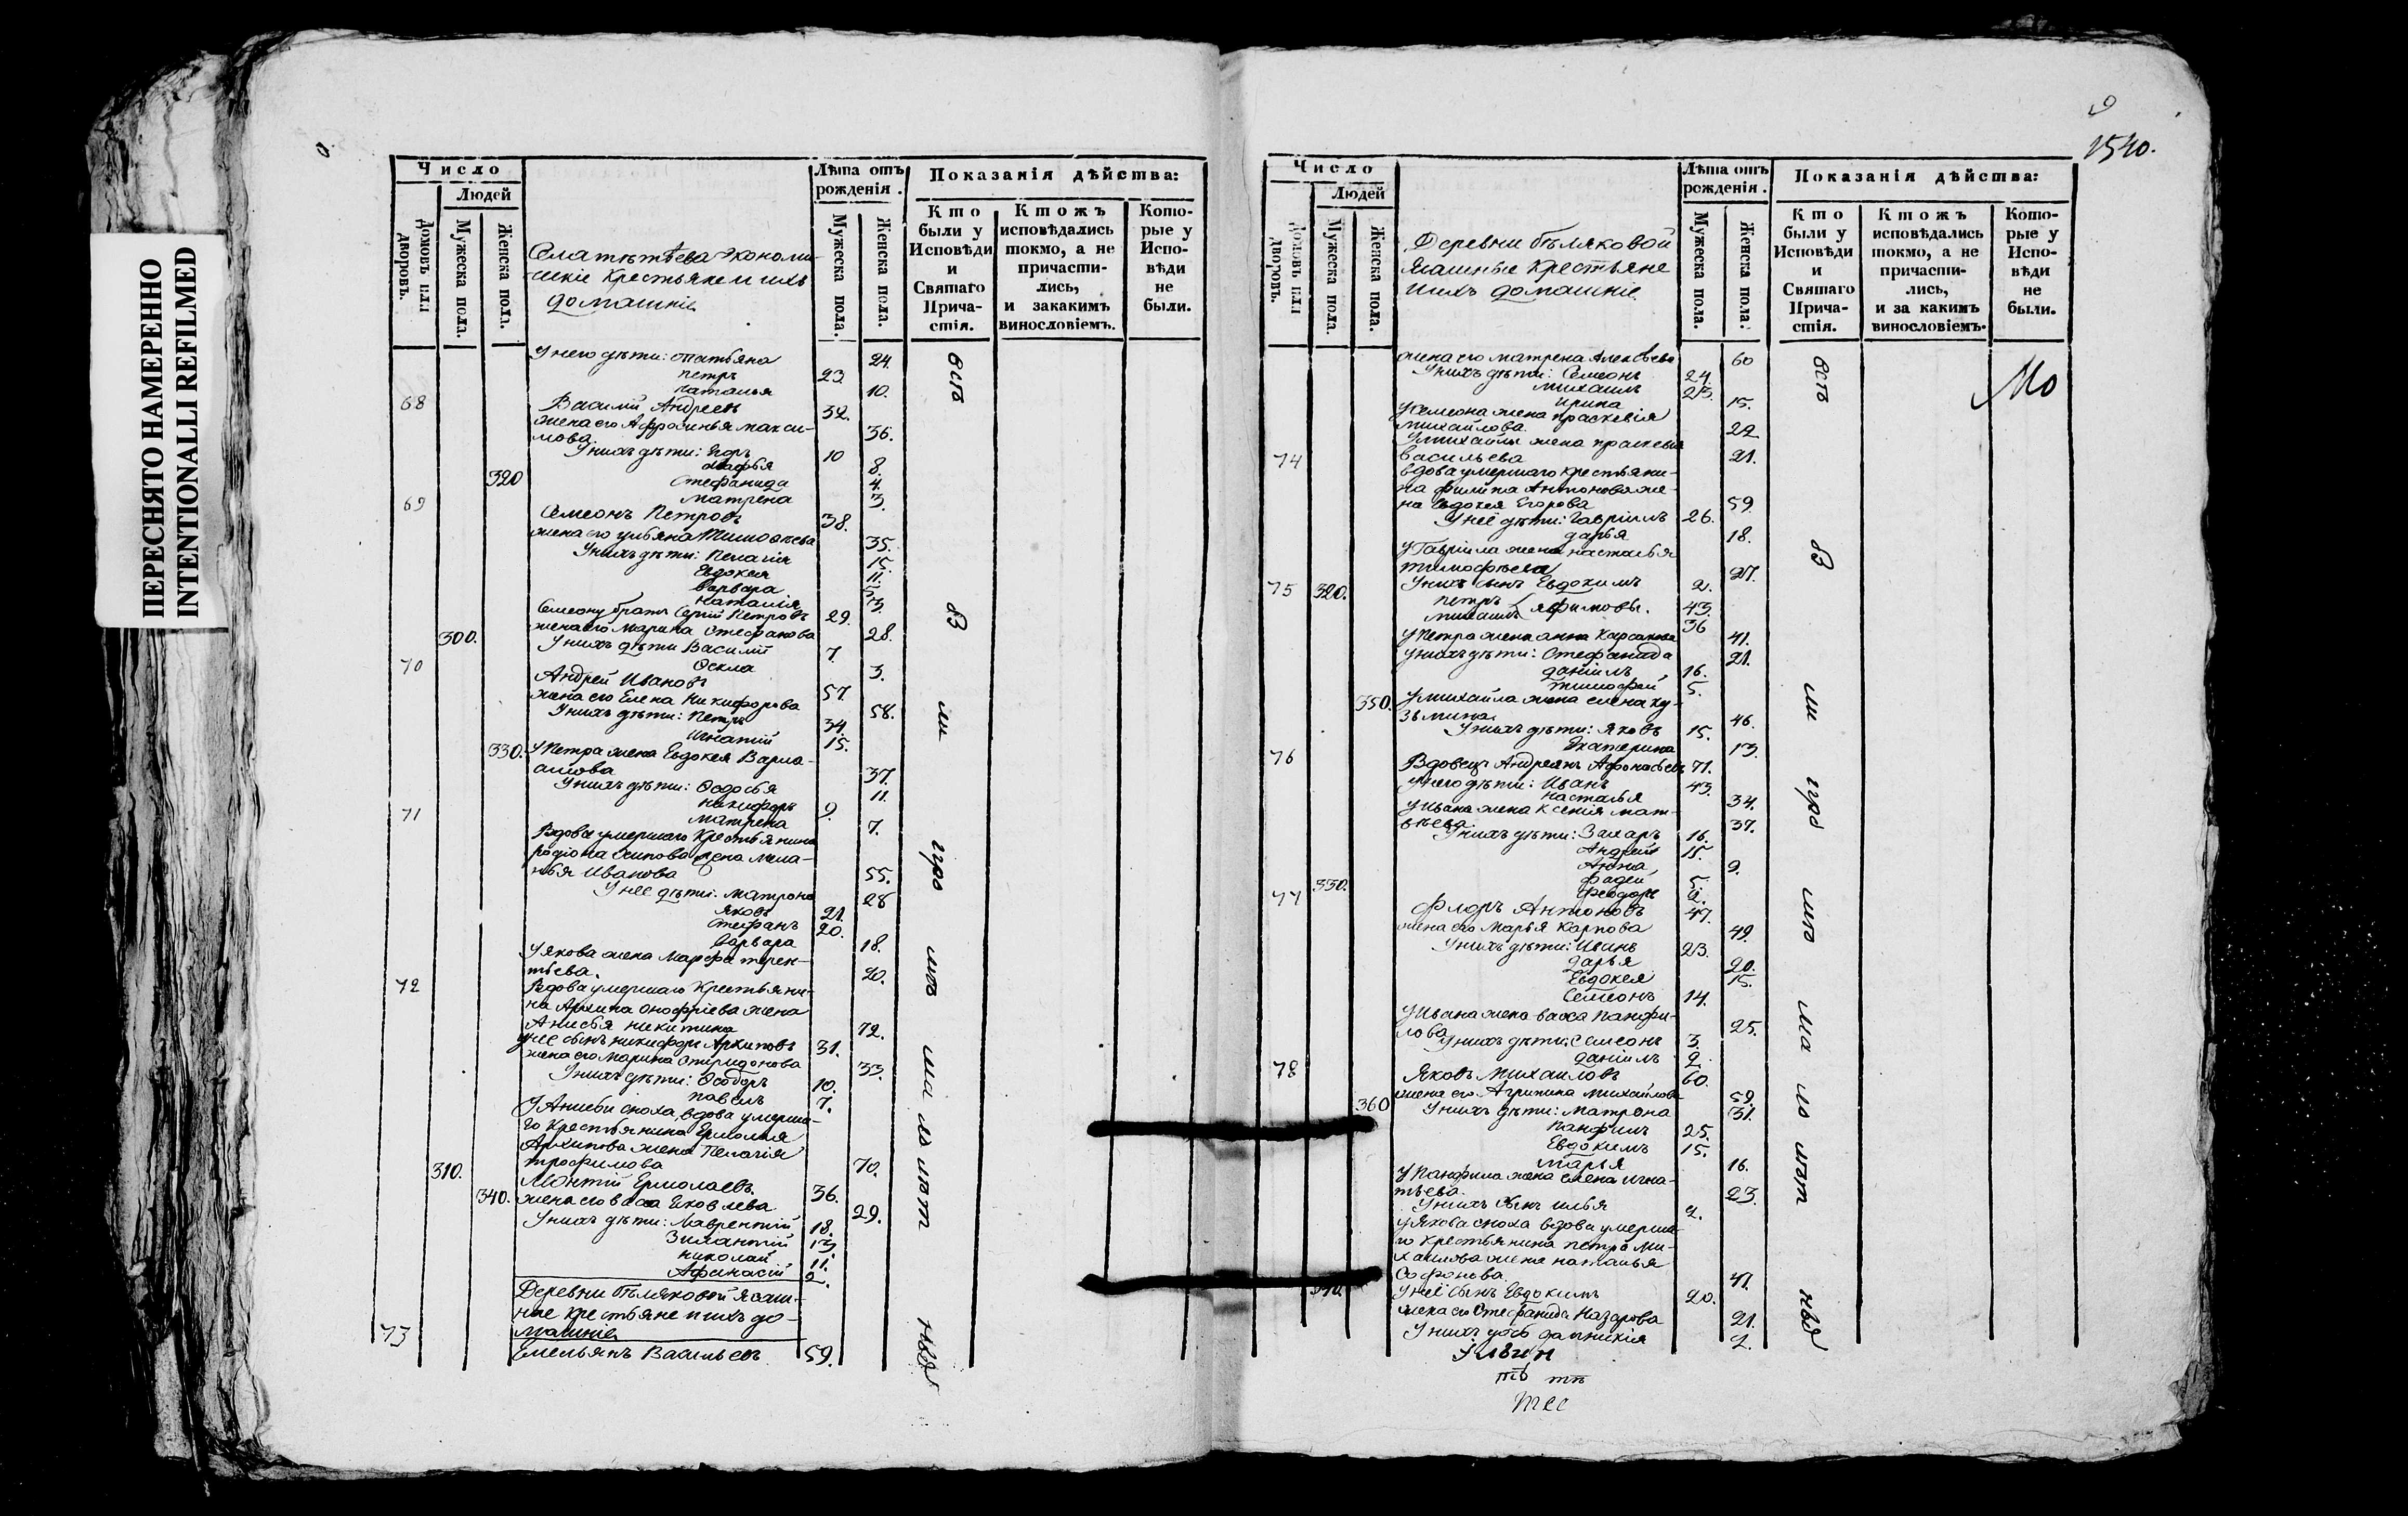 ПЕРЕСНЯТО НАМЕРЕННО
INTENTIONALLI REFILMED
Число
Людей
Домовъ или дворовъ.
Мужеска пола.
Женска пола.
экономи-
ческіе крестьяне и ихъ
домашніе
Лѣта отъ рожденія.
Мужеска пола.
Женска пола.
Показанія дѣйства:
Кто были у Исповѣди и Святаго Прича-стія.
Ктожъ исповѣдались токмо, а не причасти-лись, и закакимъ винословіемъ.
Кото-рые у Испо-вѣди не были.
У него дѣти: Татьяна 24.
Петръ 23
Наталья 10.
68 Василій Андреевъ 32.
жена его Афросинья Макси-
мова 36.
У нихъ дѣти: Егоръ 10
Марфья 8.
320 Стефанида 4.
Матрена 3.
69 Семеонъ Петровъ 38.
жена его Ульяна Тимофѣева 35.
У нихъ дѣти: Пелагія 15.
Евдокея 11.
Варвара 5.
Наталія 3.
Семеону братъ Сергій Петровъ 29.
жена его Марина Стефанова 28.
300. У нихъ дѣти Василій 7.
Өекла 3.
70 Андрей Ивановъ 57.
жена его Елена Никифорова 58.
У нихъ дѣти: Петръ 34.
Игнатій 15.
330. У Петра жена Евдокея Варла-
амова 37.
У нихъ дѣти: Өедосья 11.
Никифоръ 9.
Матрена 7.
71 Вдова умершаго крестьянина
Родіона Осипова жена Мела-
нья Иванова 55.
У нее дѣти: Матрона 28
Яковъ 21.
Стефанъ 20.
Варвара 18.
У Якова жена Марфа Терен-
тьева. 20.
72 Вдова умершаго крестьяни-
на Архипа Онофріева жена
Анисья Никитина 72.
У нее сынъ Никифоръ Архиповъ 31.
жена его Марина Спиридонова 33.
У нихъ дѣти: Өеодоръ 10.
Павелъ 7.
У Анисьи сноха, вдова умерша-
го крестьянина Ермолая
Архипова жена Пелагія
Трофимова 70.
310. Ермолаевъ 36.
340. жена его Васса Яковлева 29.
У нихъ дѣти: Лаврентій 18.
13
Николай 11.
Афанасій 2.
Деревни Бѣляковой ясаш-
ные крестьяне и ихъ до-
машніе
73 Емельянъ Васильевъ 59.
1540.
Число
Людей
Домовъ или дворовъ.
Мужеска пола.
Женска пола.
Деревни Бѣляковой
ясашные крестьяне
и ихъ домашніе
Лѣта отъ рожденія.
Мужеска пола.
Женска пола.
Показанія дѣйства:
Кто были у Исповѣди и Святаго Прича-стія.
Ктожъ исповѣдались токмо, а не причасти-лись, и за какимъ винословіемъ.
Кото-рые у Испо-вѣди не были.
жена его Матрена Алексѣева 60
У нихъ дѣти: Семеонъ 24.
Михаилъ 23.
Ирина 15.
У Семеона жена Праскевія
Михайлова 22
У Михайлы жена Праскевья
Васильева 21.
74 Вдова умершаго крестьяни-
на Филипа Антонова же-
на Евдокея Егорова 59.
У неё дѣти: Гавріилъ 26.
Дарья 18.
У Гавріила жена Настасья
Тимофѣева 27.
У нихъ сынъ Евдокимъ 2.
75 320. Петръ 43.
Михаилъ 36
У Петра жена Анна 41.
У нихъ дѣти: Стефанида 21.
Даніилъ 16.
Тимофей 5.
350. У Михайла жена Елена Ку-
зьмина 46.
У нихъ дѣти: Яковъ 15.
Екатерина 13.
76 Вдовецъ Андреянъ Афонасьевъ 71.
У него дѣти: Иванъ 43.
Настасья 34.
У Ивана жена Ксенія Мат-
вѣева 37.
У нихъ дѣти: Захаръ 16.
Андрей 15.
Анна 9.
Фадей 5.
330. Өеодоръ 2.
77 Флоръ Антоновъ 47.
жена его Марья Карпова 49.
У нихъ дѣти: Иванъ 23.
Дарья 20.
Евдокея 15.
Семеонъ 14.
У Ивана жена Васса Панфи-
лова 25.
У нихъ дѣти: Семеонъ 3.
Даніилъ 2.
78 Яковъ Михаиловъ 60.
жена его Агрипина Михайлова 59.
360 У нихъ дѣти: Матрона 31.
Панфилъ 25.
Евдокимъ 15.
Марья 16.
У Панфила жена Елена Игна-
тьева 23.
У нихъ сынъ Илья 2.
У Якова сноха вдова умерша-
го крестьянина Петра Ми-
хаилова жена Наталья
Софонова 47.
340. У неё сынъ Евдокимъ 20.
жена его Стефанида Назарова 21.
У нихъ дочь 2.